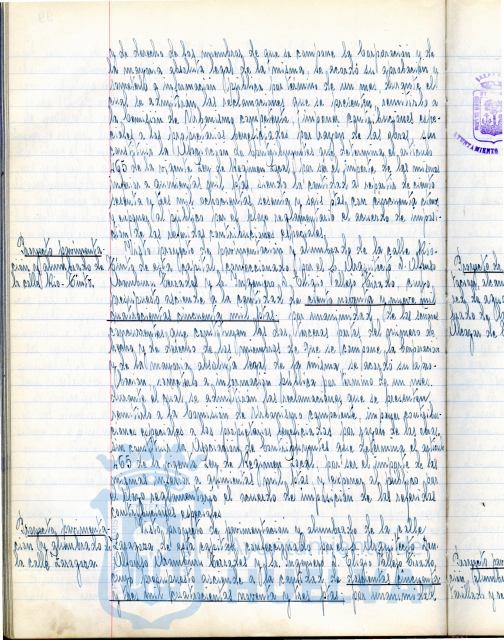 y de derecho de los miembros de que se compone la Corporación y de
la mayoría absoluta legal de la misma, se acordó su aprobación y
someterlo a información pública por término de un mes durante el
cual se admitirán las reclamaciones que se presenten, remitirlo a
la Comisión de Urbanismo competente, imponer contribuciones espe-
ciales a los propietarios beneficiados por razón de las obras, sin
constituir la Asociación de contribuyentes que determina el artículo
465 de la vigente Ley de Régimen Local, por ser el importe de las mismas
inferior a quinientas mil ptas, siendo la cantidad al reparto de ciento
setenta y tres mil ochocientas sesenta y seis ptas con cincuenta cénts
y exponer al público por el plazo reglamentario el acuerdo de imposi-
ción de las referidas contribuciones especiales.
Proyecto pavimenta-
ción y alumbrado de
la calle Río-Tinto.
Visto proyecto de pavimentación y alumbrado de la calle Río-
Tinto de esta capital, confeccionado por el Sr. Arquitecto D. Alberto
y el Sr. Ingeniero D. Eligio Vallejo Tirado, cuyo
presupuesto asciende a la cantidad de
cuatrocientas cincuenta y mil ptas. por unanimidad, de los señores
concurrentes que constituyen las dos terceras partes del número de
hecho y de derecho de los miembros de que se compone la Corporación
y de la mayoría absoluta legal de la misma, se acordó su apro-
bación, someterlo a información pública por término de un mes,
durante el cual se admitirán las reclamaciones que se presenten,
remitirlo a la Comisión de Urbanismo competente, imponer contribu-
ciones especiales a los propietarios beneficiados por razón de las obras,
sin constituir la Asociación de contribuyentes que determina el artículo
465 de la vigente Ley de Régimen Local, por ser el importe de las
mismas inferior a quinientas mil ptas, y exponer al público por
el plazo reglamentario el acuerdo de imposición de las referidas
contribuciones especiales.
Proyecto pavimenta-
ción y alumbrado de
la calle Zaragoza.
Visto proyecto de pavimentación y alumbrado de la calle
Zaragoza de esta capital, confeccionado por el Sr. Arquitecto Don
Alberto y el Sr. Ingeniero D. Eligio Vallejo Tirado,
cuyo presupuesto asciende a la cantidad de doscientas cincuenta
y dos mil cuatrocientas noventa y tres ptas. por unanimidad
AYUNTAMIENTO
Proyecto de